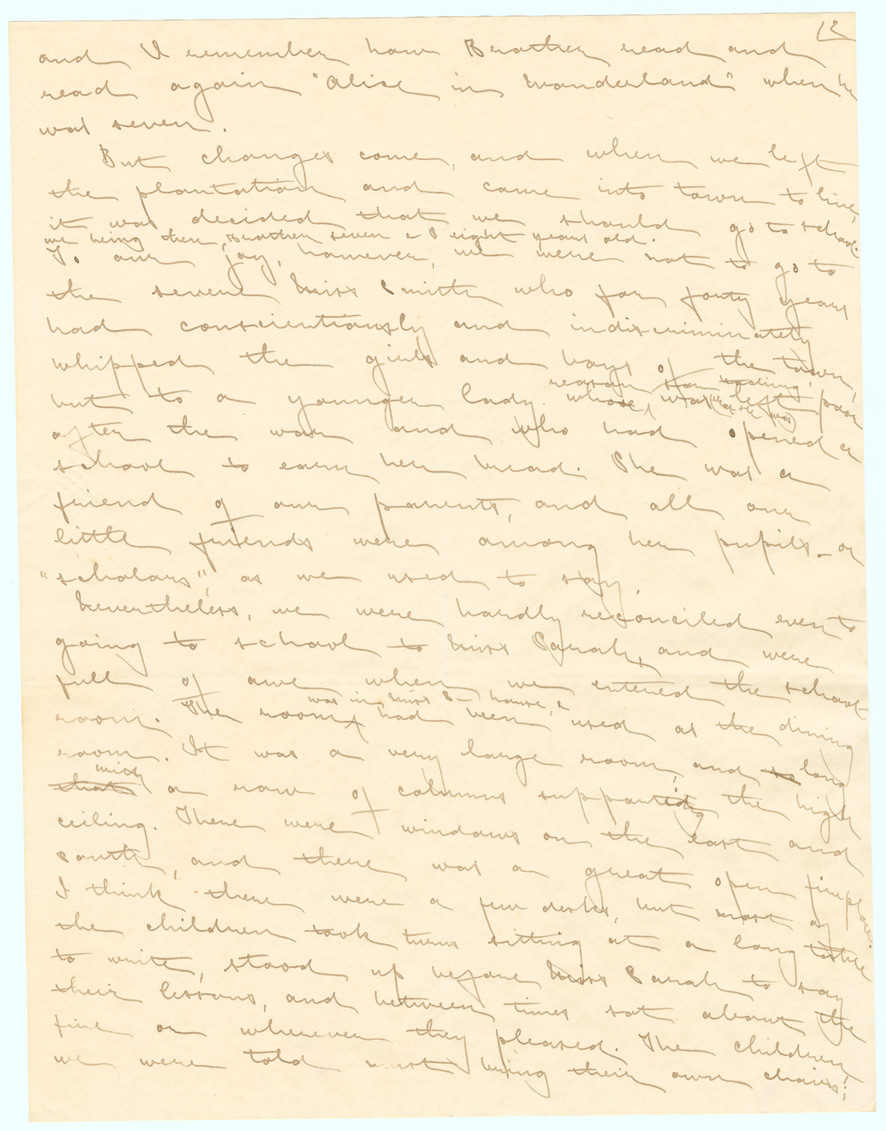 12
and I remember how Brother read and
read again "Alice in Wonderland" when he
was seven.
But changes come, and when we left
the plantation and came into town to live,
it was decided that we should go to school
we being then, Brother seven & I eight years old.
To our joy, however, we were not to go to
the severe Miss Smith who for forty years
had conscientiously and indiscriminately
whipped the girls and boys of the town,
but to a younger lady whose was left poor
after the war and who had opened a
school to earn her bread. She was a
friend of our parents, and all our
little friends were among her pupils - or
"scholars", as we used to say.
Nevertheless, we were hardly reconciled even to
going to school to Miss Sarah, and were
full of awe when we entered the school
was in Miss S— house, &
room. The room had been used as the dining
room. It was a very large room, and so long
with
that a row of columns supported the high
ceiling. There were windows on the east and
south, and there was a great open fireplace.
I think there were a few desks, but most of
the children took turns sitting at a long table
to write, stood up before Miss Sarah to say
their lessons, and between times sat about the
fire or wherever they pleased. The children
we were told must bring their own chairs;